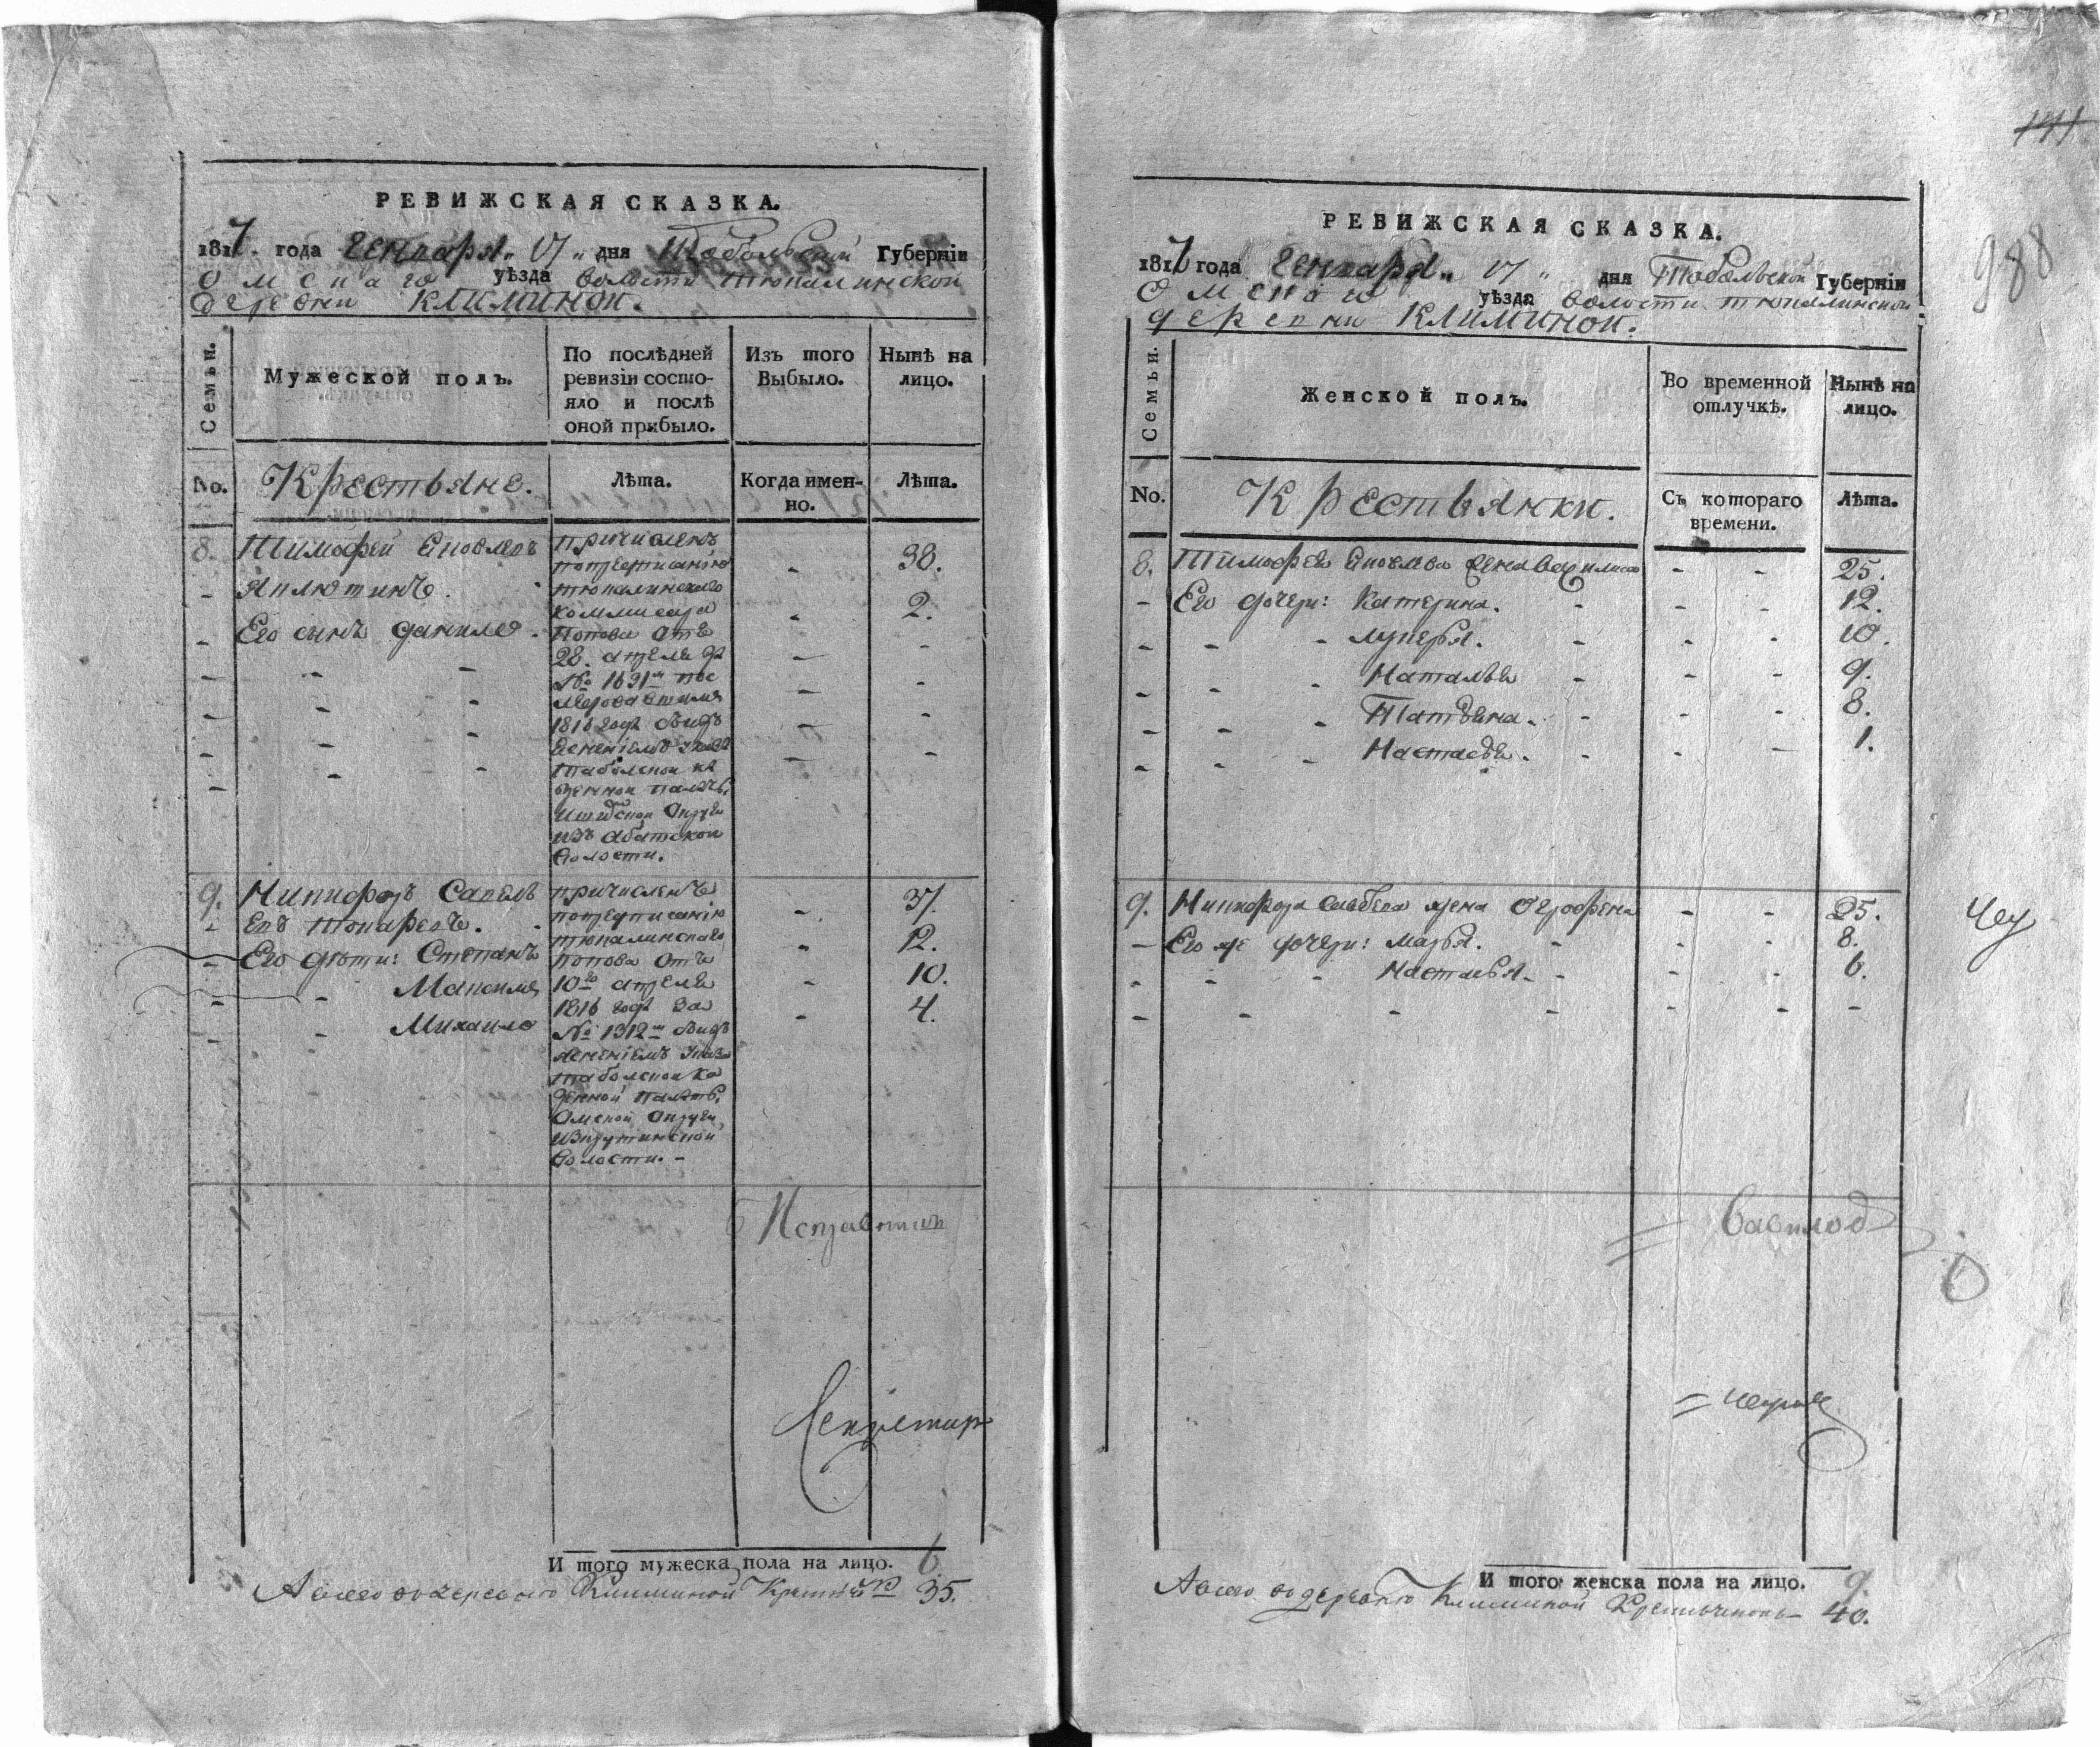 РЕВИЖСКАЯ СКАЗКА.
1817. года Генваря „ 17 „ дня Тобольской Губерніи
Омскаго уѣзда волости тюкалинской
деревни Климиной.
Семьи.
Мужеской полъ.
По послѣдней ревизіи состо-
яло и послѣ оной прибыло.
Изъ того Выбыло.
Нынѣ на лицо.
No.
Крестьяне.
Лѣта.
Когда имен-
но.
Лѣта.
8. Тимофей Яковлевъ
38.
Его сынъ Данило. 2.
причисленъ
попредписанію
тюкалинскаго
коммисара
Попова отъ
28. апреля
№ 1631
1816 года
тобольской ка
зенной
округи
изъ абатской
волости.
9. Никифоръ Савель
евъ Токаревъ. 37.
Его дѣти: Степанъ 12.
Максимъ 10.
Михаило 4.
причисленъ
попредписанію
тюкалинскаго
Попова отъ
10го апреля
1816 года за
№ 1312
тобольской ка
зенной
Омской округи
изкрутинской
волости. -
Исправникъ
Секретарь
И того мужеска пола на лицо. 6
Авсего вдеревню Климиной 35.
141
988
РЕВИЖСКАЯ СКАЗКА.
1817 года Генваря „ 17 „ дня Тобольской Губерніи
Омскаго уѣзда волости тюкалинской
деревни Климиной.
Семьи.
Женской полъ.
Во временной отлучкѣ.
Нынѣ на лицо.
No.
Крестьянки.
Съ котораго времени.
Лѣта.
8. Тимофея Яковлева жена Василиса - - 25.
- Его дочери: Катерина. - - - 12.
- - - Лукерья. - - - 10.
- - - Наталья - - - 9.
- - - Татьяна. - - - 8.
- - - Настасья. - - - 1.
9. Никифора Савельева жена Огрофена - - 25.
- Его же дочери: Марья. - - - 8.
- - - Настасья. - - - 6.
И того женска пола на лицо. 9.
Авсего вдеревню Климиной 40.